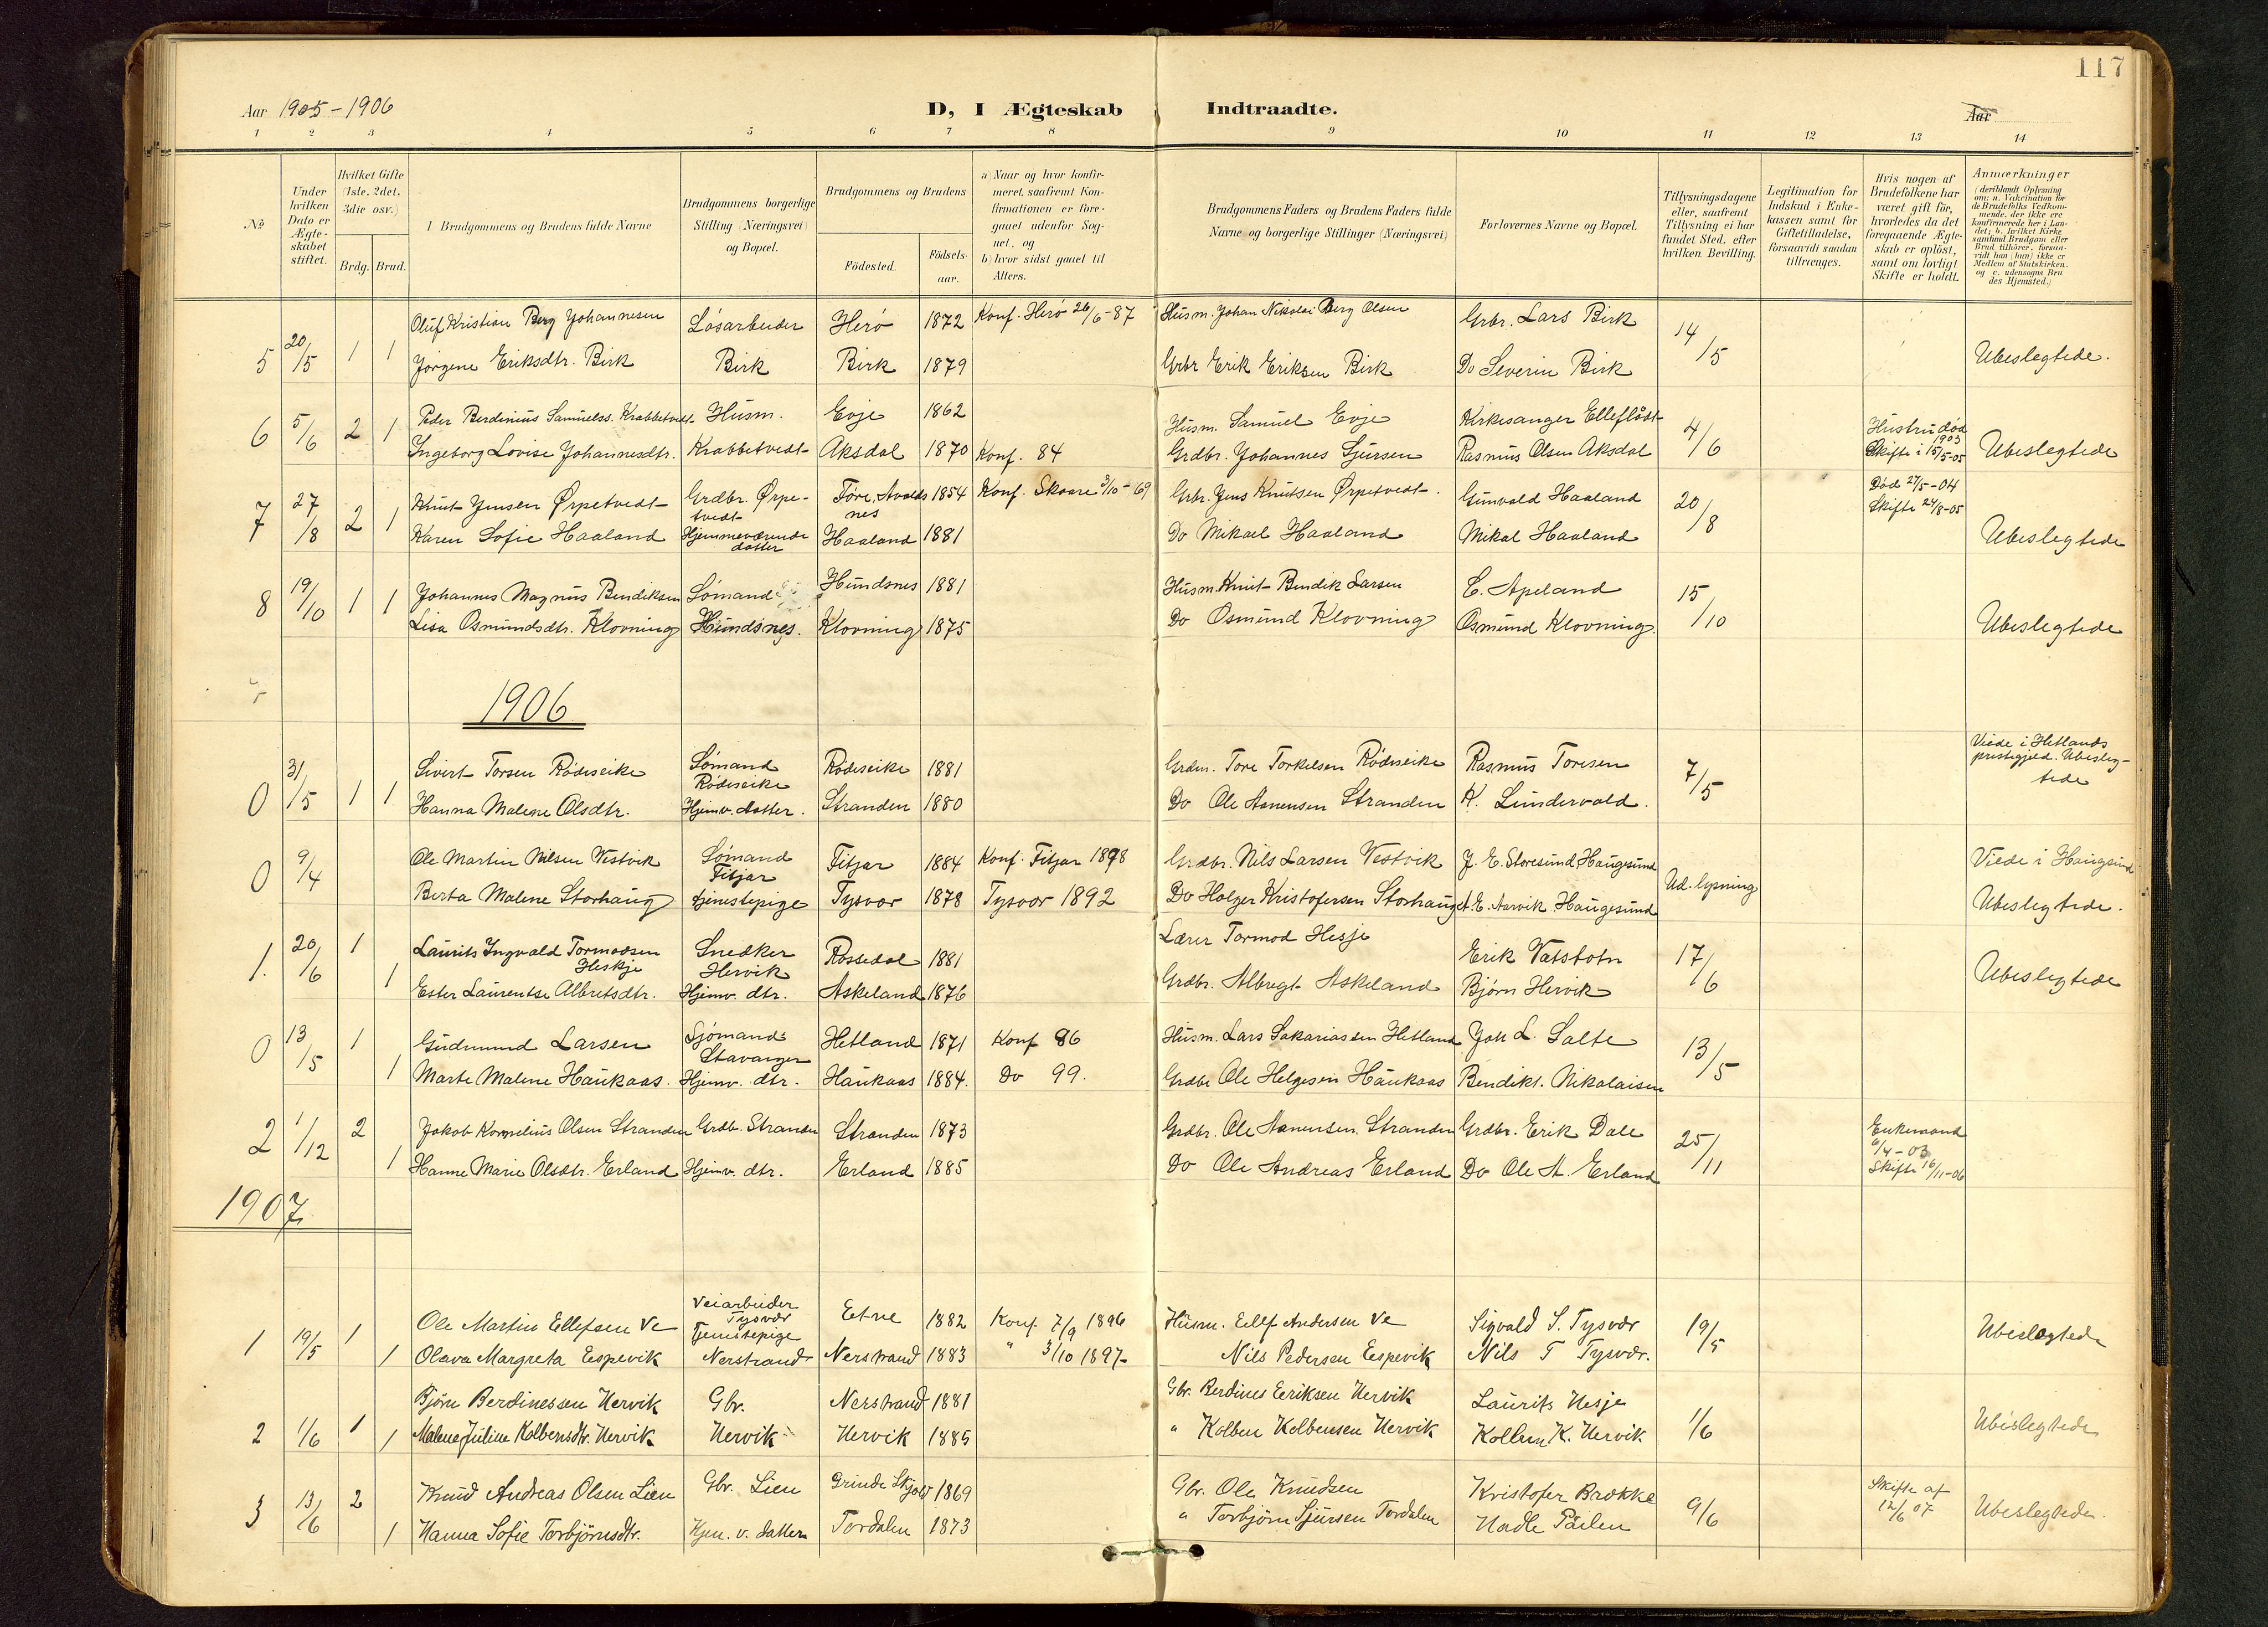 117
Aar 1905-1906
D, I Ægteskab Indtraadte.
Aar
1 2 3 4 5 6 7 8 9 10 11 12 13 14
No
Under hvilken Dato er Ægteskabet stiftet.
Hvilket Gifte (1ste, 2det, 3die osv.)
Brdg. Brud.
Brudgommens og Brudens fulde Navne
Brudgommens borgerlige Stilling (Næringsvei) og Bopæl.
Brudgommens og Brudens
Födested.
Födselsaar.
a) Naar og hvor konfirmeret, saafremt Konfirmationen er foregaaet udenfor Sognet, og
b) hvor sidst gaaet til Alters.
Brudgommens Faders og Brudens Faders fulde Navne og borgerlige Stillinger (Næringsvei)
Forlovernes Navne og Bopæl.
Tillysningsdagene eller, saafremt Tillysning ei har fundet Sted, efter hvilken Bevilling.
Legitimation for Indskud i Enkekassen samt for Giftetilladelse, forsaavidt saadan tiltrænges.
Hvis nogen af Brudefolkene har været gift för, hvorledes da det foregaaende Ægteskab er oplöst, samt om lovligt Skifte er holdt.
Anmærkninger
(deriblandt Oplysning om: a. Vakcination for de Brudefolks Vedkommende, der ikke ere konfirmerede her i Landet; b. hvilket Kirkesamfund Brudgom eller Brud tilhörer, forsaavidt han (hun) ikke er Medlem af Statskirken, og c. udensogns Brudes Hjemsted.)
5 20/5 1 1 Oluf Kristian Berg Johannesen Lösarbeider Herö 1872 Konf. Herö 26/6-87 Husm. Johan Nikolai Berg Olsen Grbr. Lars Birk 14/5
Jörgine Eriksdtr. Birk Birk Birk 1879 Grbr Erik Eriksen Birk Do Severin Birk Ubeslegtede.
6 5/6 2 1 Peder Berdinius Samuelss. Krabbetvedt Husm. Evje 1862 Husm. Samuel Evje Kirkesanger Elleflådt 4/6 Hustru död 1903
Ingeborg Lovise Johannesdtr. Krabbetvedt Aksdal 1870 Konf. 84 Grdbr. Johannes Sjursen Rasmus Olsen Aksdal Skifte i 15/5-05 Ubeslegtede
7 27/8 2 1 Knut Jensen Ørpetvedt Grdbr. Ørpetvedt Före, Avaldsnes 1854 Konf. Skaare 3/10-69 Grbr. Jens Knutsen Ørpetvedt. Gunvald Haaland 20/8 Död 27/5-04 Skifte 24/8-05
Karen Sofie Haaland Hjemmeværende datter Haaland 1881 Do Mikael Haaland Mikal Haaland Ubeslegtede
8 19/10 1 1 Johannes Magnus Bendiksen Sömand Hundsnes 1881 Husm. Knut Bendik Larsen C. Apeland 15/10
Lisa Osmundsdtr. Klovning Hundsnes. Klovning 1875 Do Osmund Klovning Osmund Klovning. Ubeslegtede
1906
0 31/5 1 1 Sivert Torsen Rödseike Sömand Rödseike Rödseike 1881 Grdm. Tore Torkelsen Rödseike Rasmus Toresen 7/5 Viede i Hetlands prestegjeld. Ubeslegtede
Hanna Malene Olsdtr. Hjemv. datter. Stranden 1880 Do Ole Asmensen Stranden K. Lundervald.
0 9/4 Ole Martin Nilsen Vestvik Sömand Fitjar Fitjar 1884 Konf. Fitjar 1898 Grdbr. Nils Larsen Vestvik J. E. Storesund, Haugesund Ud. lysning Viede i Haugesund
Berta Malene Storhaug tjenestepige Tysvor 1878 Tysvor 1892 Do Holger Kristofersen Storhaug A. E. Aarvik Haugesund Ubeslegtede.
1. 20/6 1 1 Laurits Ingvald Tormodsen Heskje Snedker Hervik Rossedal 1881 Lærer Tormod Hesje Erik Vatsbotn 17/6
Ester Laurentse Albretsdtr. Hjemv. dtr. Askeland 1876 Grdbr. Albregt Askeland Björn Hervik Ubeslegtede
0 13/5 1 1 Gudmund Larsen Sjömand Stavanger Hetland 1871 Konf 86 Husm. Lars Sakariassen Hetland Joh L. Salte 13/5
Marte Malene Haukaas. Hjemv. dtr. Haukaas 1884. Do 99. Grdbr Ole Helgesen Haukaas Bendikt. Nikolaisen
2 1/12 2 1 Jakob Kornelius Olsen Stranden Grdbr. Stranden Stranden 1873 Grdbr. Ole Asmensen Stranden Grdbr. Erik Dale 25/11 Enkemand 6/4-03 Skifte 16/11-06
Hanne Marie Olsdtr. Erland Hjemv. dtr. Erland 1885 Do Ole Andreas Erland Do Ole A. Erland
1907
1 19/5 1 1 Ole Martin Ellefsen Ve Veiarbeider Tysvær Etne 1882 Konf 7/9 1896 Husm. Ellef Andersen Ve Sigvald S. Tysvær 19/5 Ubeslegtede
Olava Margreta Espevik Tjenestepige Nerstrand Nerstrand 1883 " 3/10 1897 Nils Pedersen Espevik Nils T Tysvær.
2 1/6 1 1 Bjørn Berdinessen Hervik Gbr. Nerstrand 1881 Gbr. Berdines Eriksen Hervik Laurits Hesje 1/6
Malene Juline Kolbensdtr. Hervik Hervik Hervik 1885 " Kolben Kolbensen Hervik Kolben K. Hervik Ubeslegtede
3 13/6 2 1 Knud Andreas Olsen Lien Gbr. Lien Grinde Skjold 1869 Gbr. Ole Knudsen Kristofer Brække 9/6 Skifte af 12/6 07 Ubeslegtede.
Hanna Sofie Torbjørnsdtr. Hjem. v. datter Tordalen 1873 " Torbjørn Sjursen Tordalen Hadle